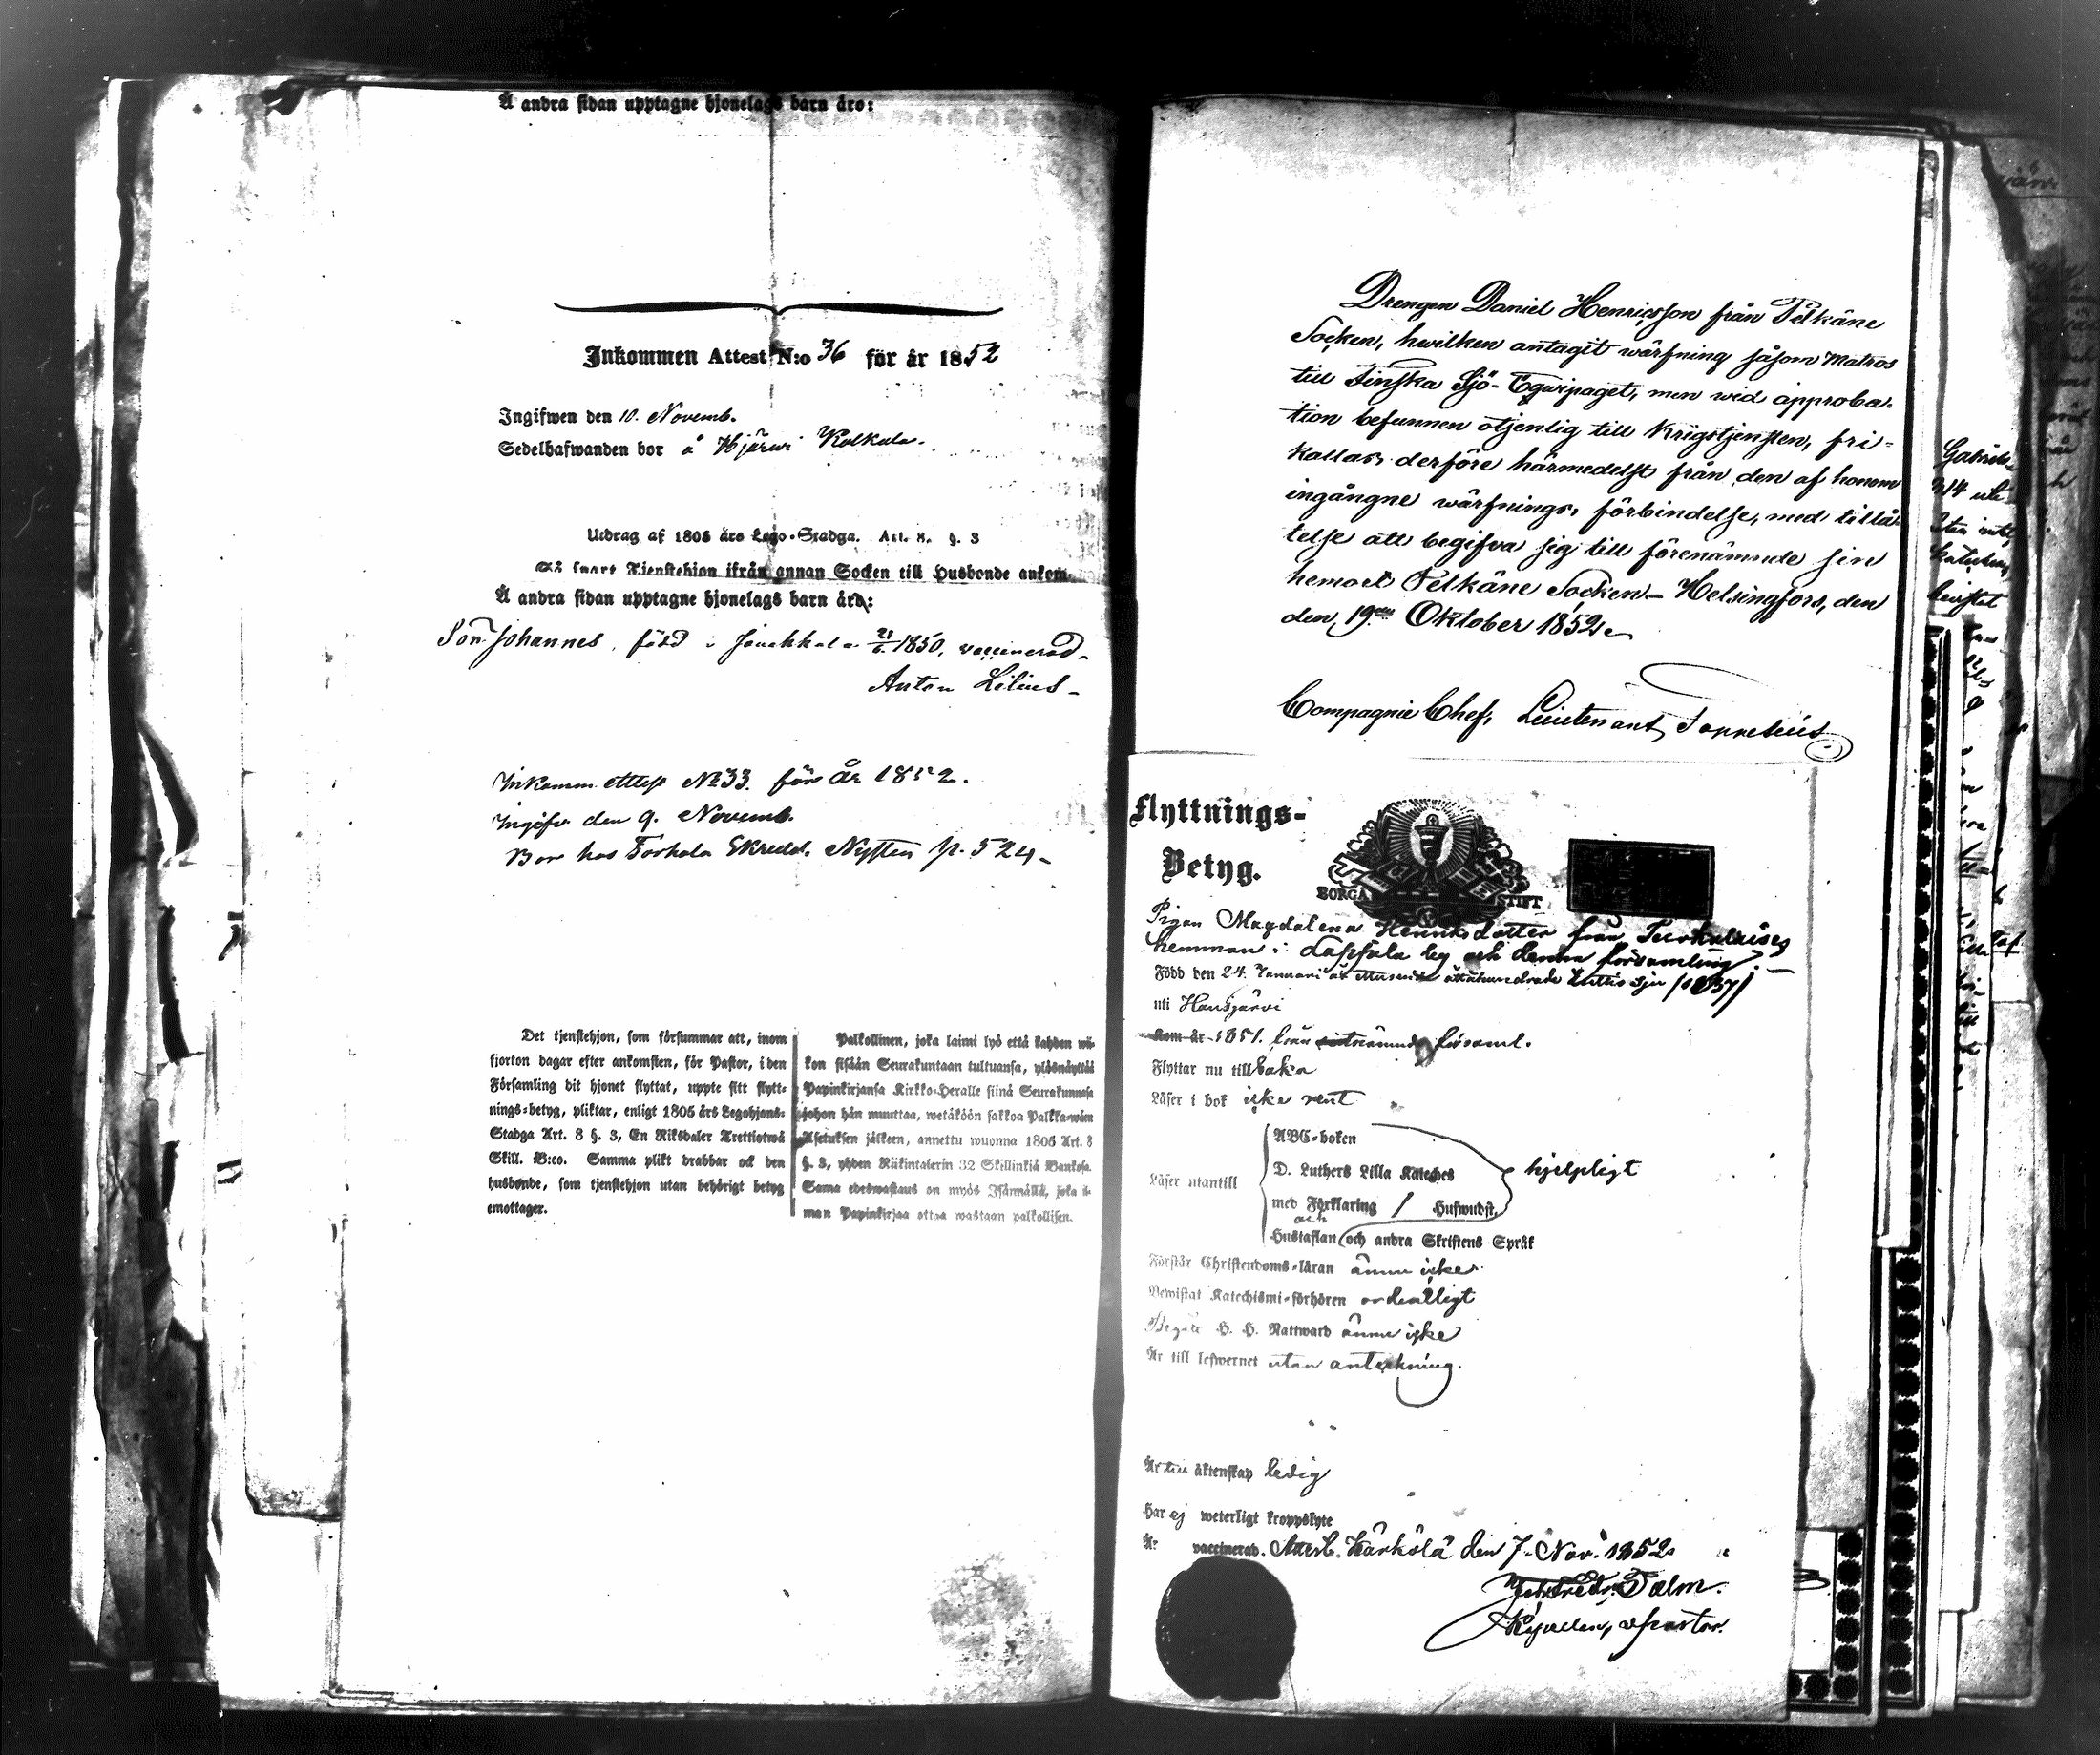 Å andra sidan upptagne hjonelags barn äro:
Inkommen Attest N:o 36 för år 1852
Ingifwen den 10. Novemb.
Sedelhafwanden bor å Hjärvi Kolkala.
Utdrag af 1805 års Lego-Stadga. Art. 8. §. 3
Så snart Tjenstehjon ifrån annan Socken till Husbonde ankom-
Å andra sidan upptagne hjonelags barn äro:
Son Johannes, född i Janakkala 21/6 1850, vaccinerad-
Anton Lilius-
Inkomm. attest No 33. för år 1852.
Ingifv den 9. Novemb.
Bor hos Torhola Skredd. Nysten p. 524-
Det tjenstehjon, som försummar att, inom
fjorton dagar efter ankomsten, för Pastor, i den
Församling dit hjonet flyttat, uppte sitt flytt-
nings-betyg, pliktar, enligt 1805 års Legohjons-
Stadga Art. 8 §. 3, En Riksdaler Trettiotwå
Skill. B:co. Samma plikt drabbar ock den
husbonde, som tjenstehjon utan behörigt betyg
emottager.
Palkollinen, joka laimi lyö että kahden wii-
kon sisään Seurakuntaan tultuansa, ylösnäyttää
Papinkirjansa Kirkko-Heralle siinä Seurakunnasa
johon hän muuttaa, wetäköön sakkoa Palkka-wäen
Asetuksen jälkeen, annettu wuonna 1805 Art. 8
§. 3, yhden Riikintalerin 32 Skillinkiä Bankosa.
Sama edeswastaus on myös Isännällä, joka il-
man Papinkirjaa ottaa wastaan palkollisen.
Drengen Daniel Henricsson från Pelkäne
Socken, hwilken antagit wärfning såsom Matros
till Finska Sjö-Eqwipaget, men wid approba-
tion befunnen otjenlig till Krigstjensten, fri-
kallas derföre härmedelst från den af honom
ingångne wärfnings förbindelse, med tillå-
telse att begifva sig till förenämnde sin
hemort Pelkäne Socken- Helsingfors, den
den, 19de Oktober 1852.
Compagnie Chef, Lieutenant,
Flyttnings-
Betyg.
BORGÅ STIFT
Pigan Magdalena Henriksdotter från
hemman i Lappula by och denna församling
Född den 24. Januari år ettusende åttahundrade trettio sju (1837)
uti Hausjärvi
Kom år 1851. från församl.
Flyttar nu tillbaka
Läser i bok icke rent
Läser utantill
ABC-boken
D. Luthers Lilla Kateches
med Förklaring / Huswudst.
och
Hustaflan och andra Skriftens Språk
hjelpligt
Förstår Christendoms-läran ännu icke
Bewistat Katechismi-förhören ordentligt
Begått H. H. Nattward ännu icke
Är till lefwernet utan anteckning.
Är till äktenskap ledig
Har ej weterligt kroppslyte
Är vaccinerad. Attest. Kärkölä den 7. Nov. 1852